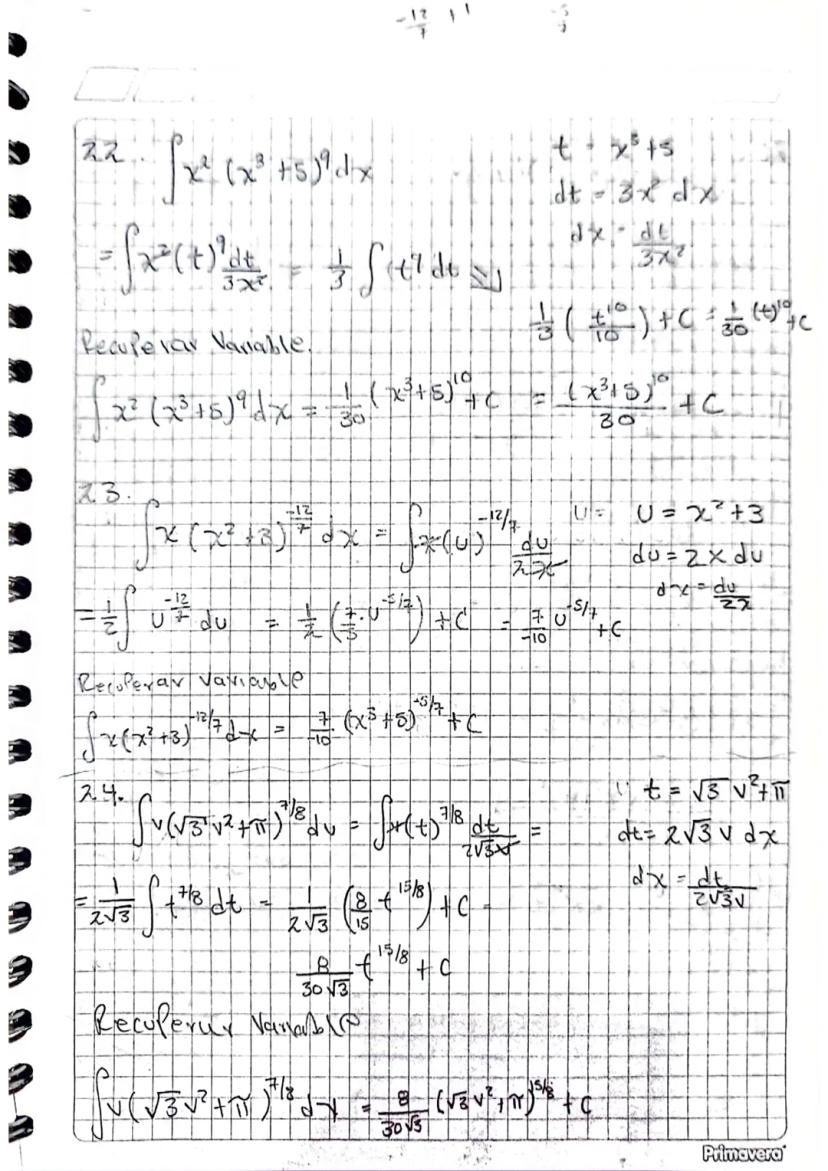 -12/7 +1 -5/7
22. ∫x² (x³ +5)⁹ dx t = x³ +5
dt = 3x² dx
dx = dt/3x²
= ∫x² (t)⁹ dt/3x² = 1/3 ∫(t⁹ dt
1/3 (t¹⁰/10) + C = 1/30 (t)¹⁰ + C
Recuperar Variable.
∫x² (x³+5)⁹ dx = 1/30 (x³+5)¹⁰ + C = (x³+5)¹⁰/30 + C
23.
∫x (x² +3)^(-12/7) dx = ∫x(u)^(-12/7) du/2x U = U = x² +3
du = 2x du
dx = du/2x
= 1/2 ∫ u^(-12/7) du = 1/2 (7/5 · u^(-5/7)) + C = 7/-10 u^(-5/7) + C
Recuperar variable
∫x(x²+3)^(-12/7) dx = 7/-10 (x³+5)^(-5/7) + C
24.
∫v(√3 v² +π)^(7/8) dv = ∫v(t)^(7/8) dt/2√3v = t = √3 v² +π
dt = 2√3 v dx
dx = dt/2√3v
= 1/2√3 ∫ t^(7/8) dt = 1/2√3 (8/15 t^(15/8)) + C =
8/30√3 t^(15/8) + C
Recuperar Variable
∫v(√3 v² +π)^(7/8) dx = 8/30√3 (√3 v² +π)^(15/8) + C
Primavera